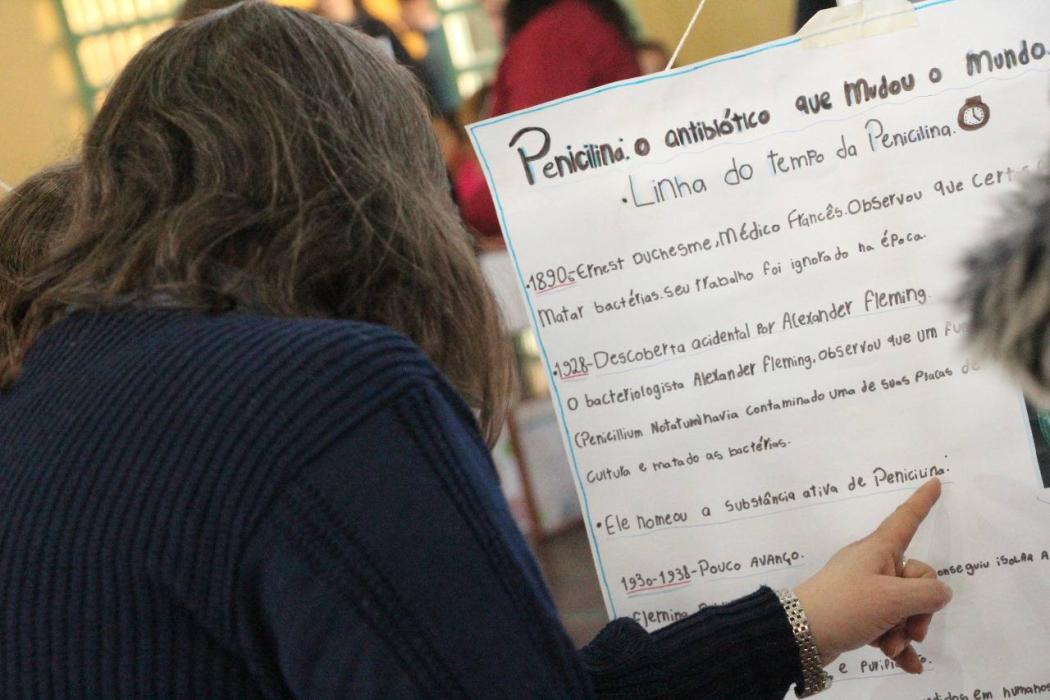 Penicilina: o antibiótico que mudou o mundo.
.Linha do tempo da Penicilina.
.1890-Ernest Duchesme, Médico Francês. Observou que
matar bactérias. Seu trabalho foi ignorado na época.
.1928-Descoberta acidental por Alexander Fleming.
O bacteriologista Alexander Fleming, observou que um
(Penicillium Notatum) havia contaminado uma de suas placas de
cultura e matado as bactérias.
•Ele nomeou a substância ativa de Penicilina.
1930-1938-Pouco avanço.
onseguiu isolar a
Fleming
e
em humanos